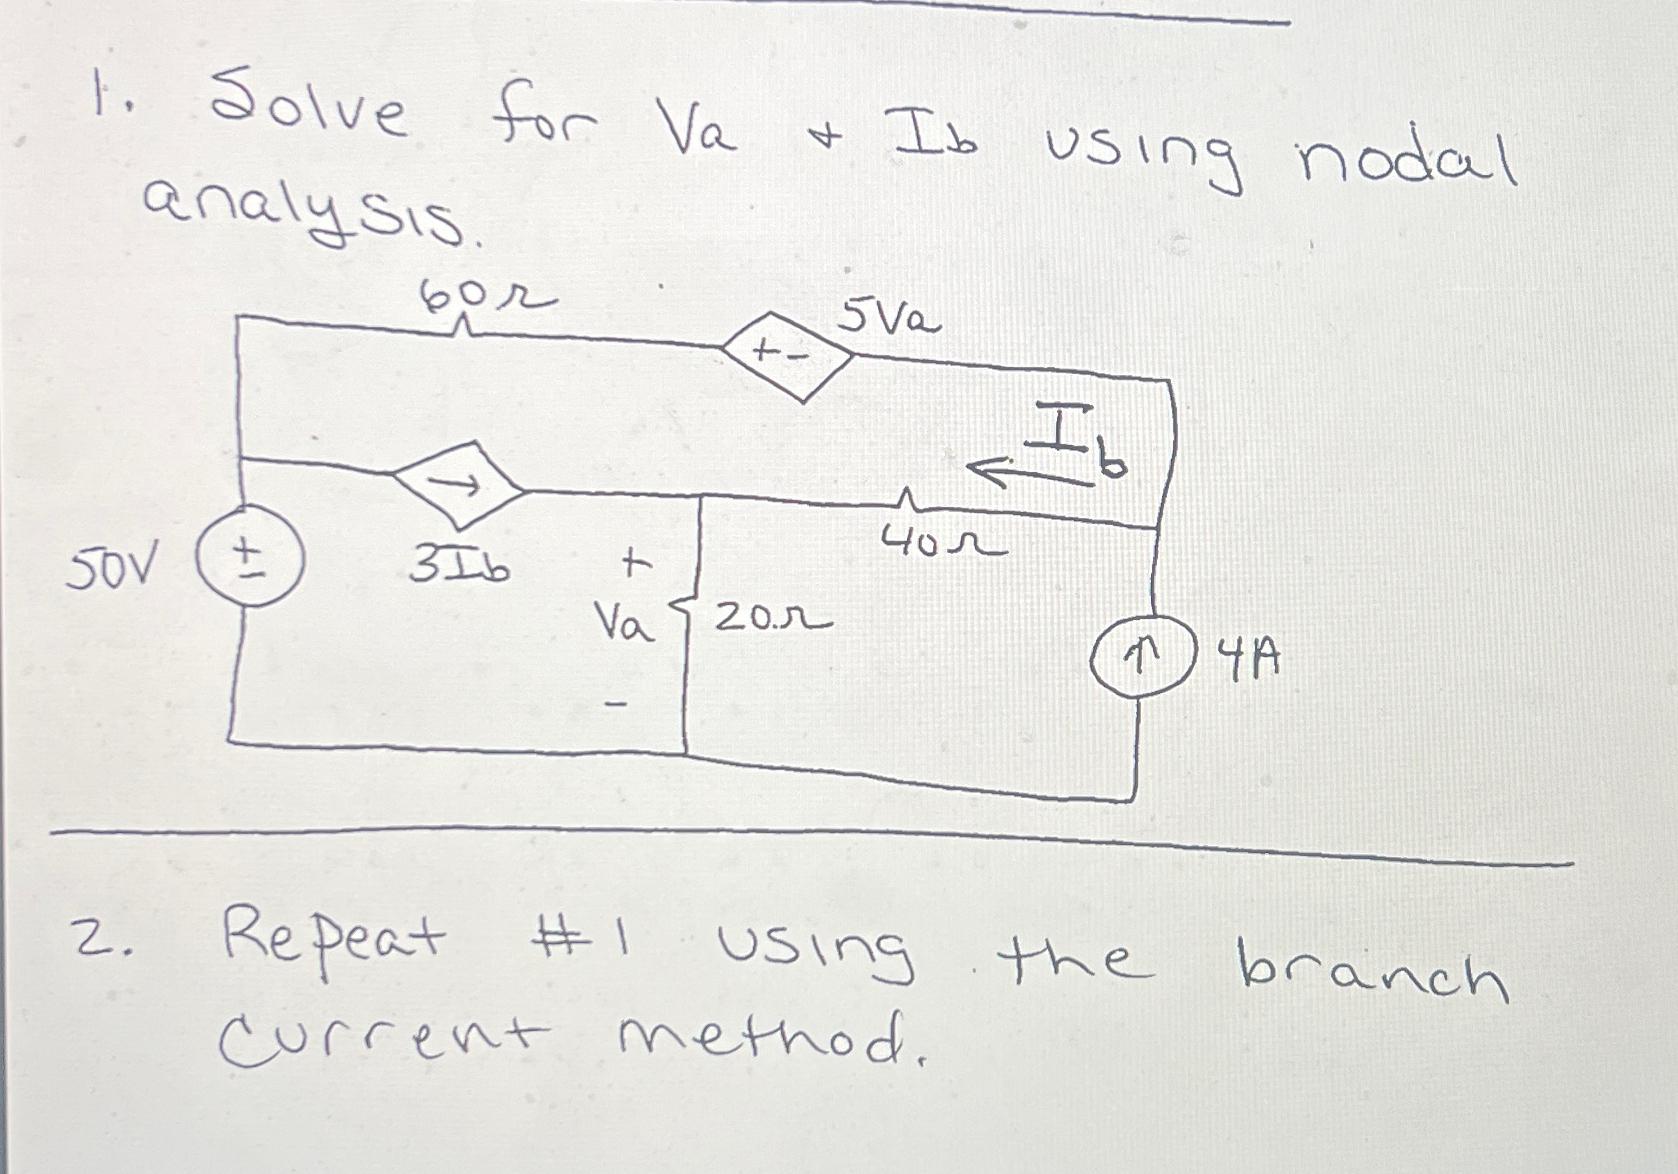 1. Solve for Va + Ib using nodal
analysis.
60Ω
5Va
+ -
Ib
50V
+
-
3Ib
40Ω
+
Va
-
20Ω
4A
2. Repeat #1 using the branch
current method.